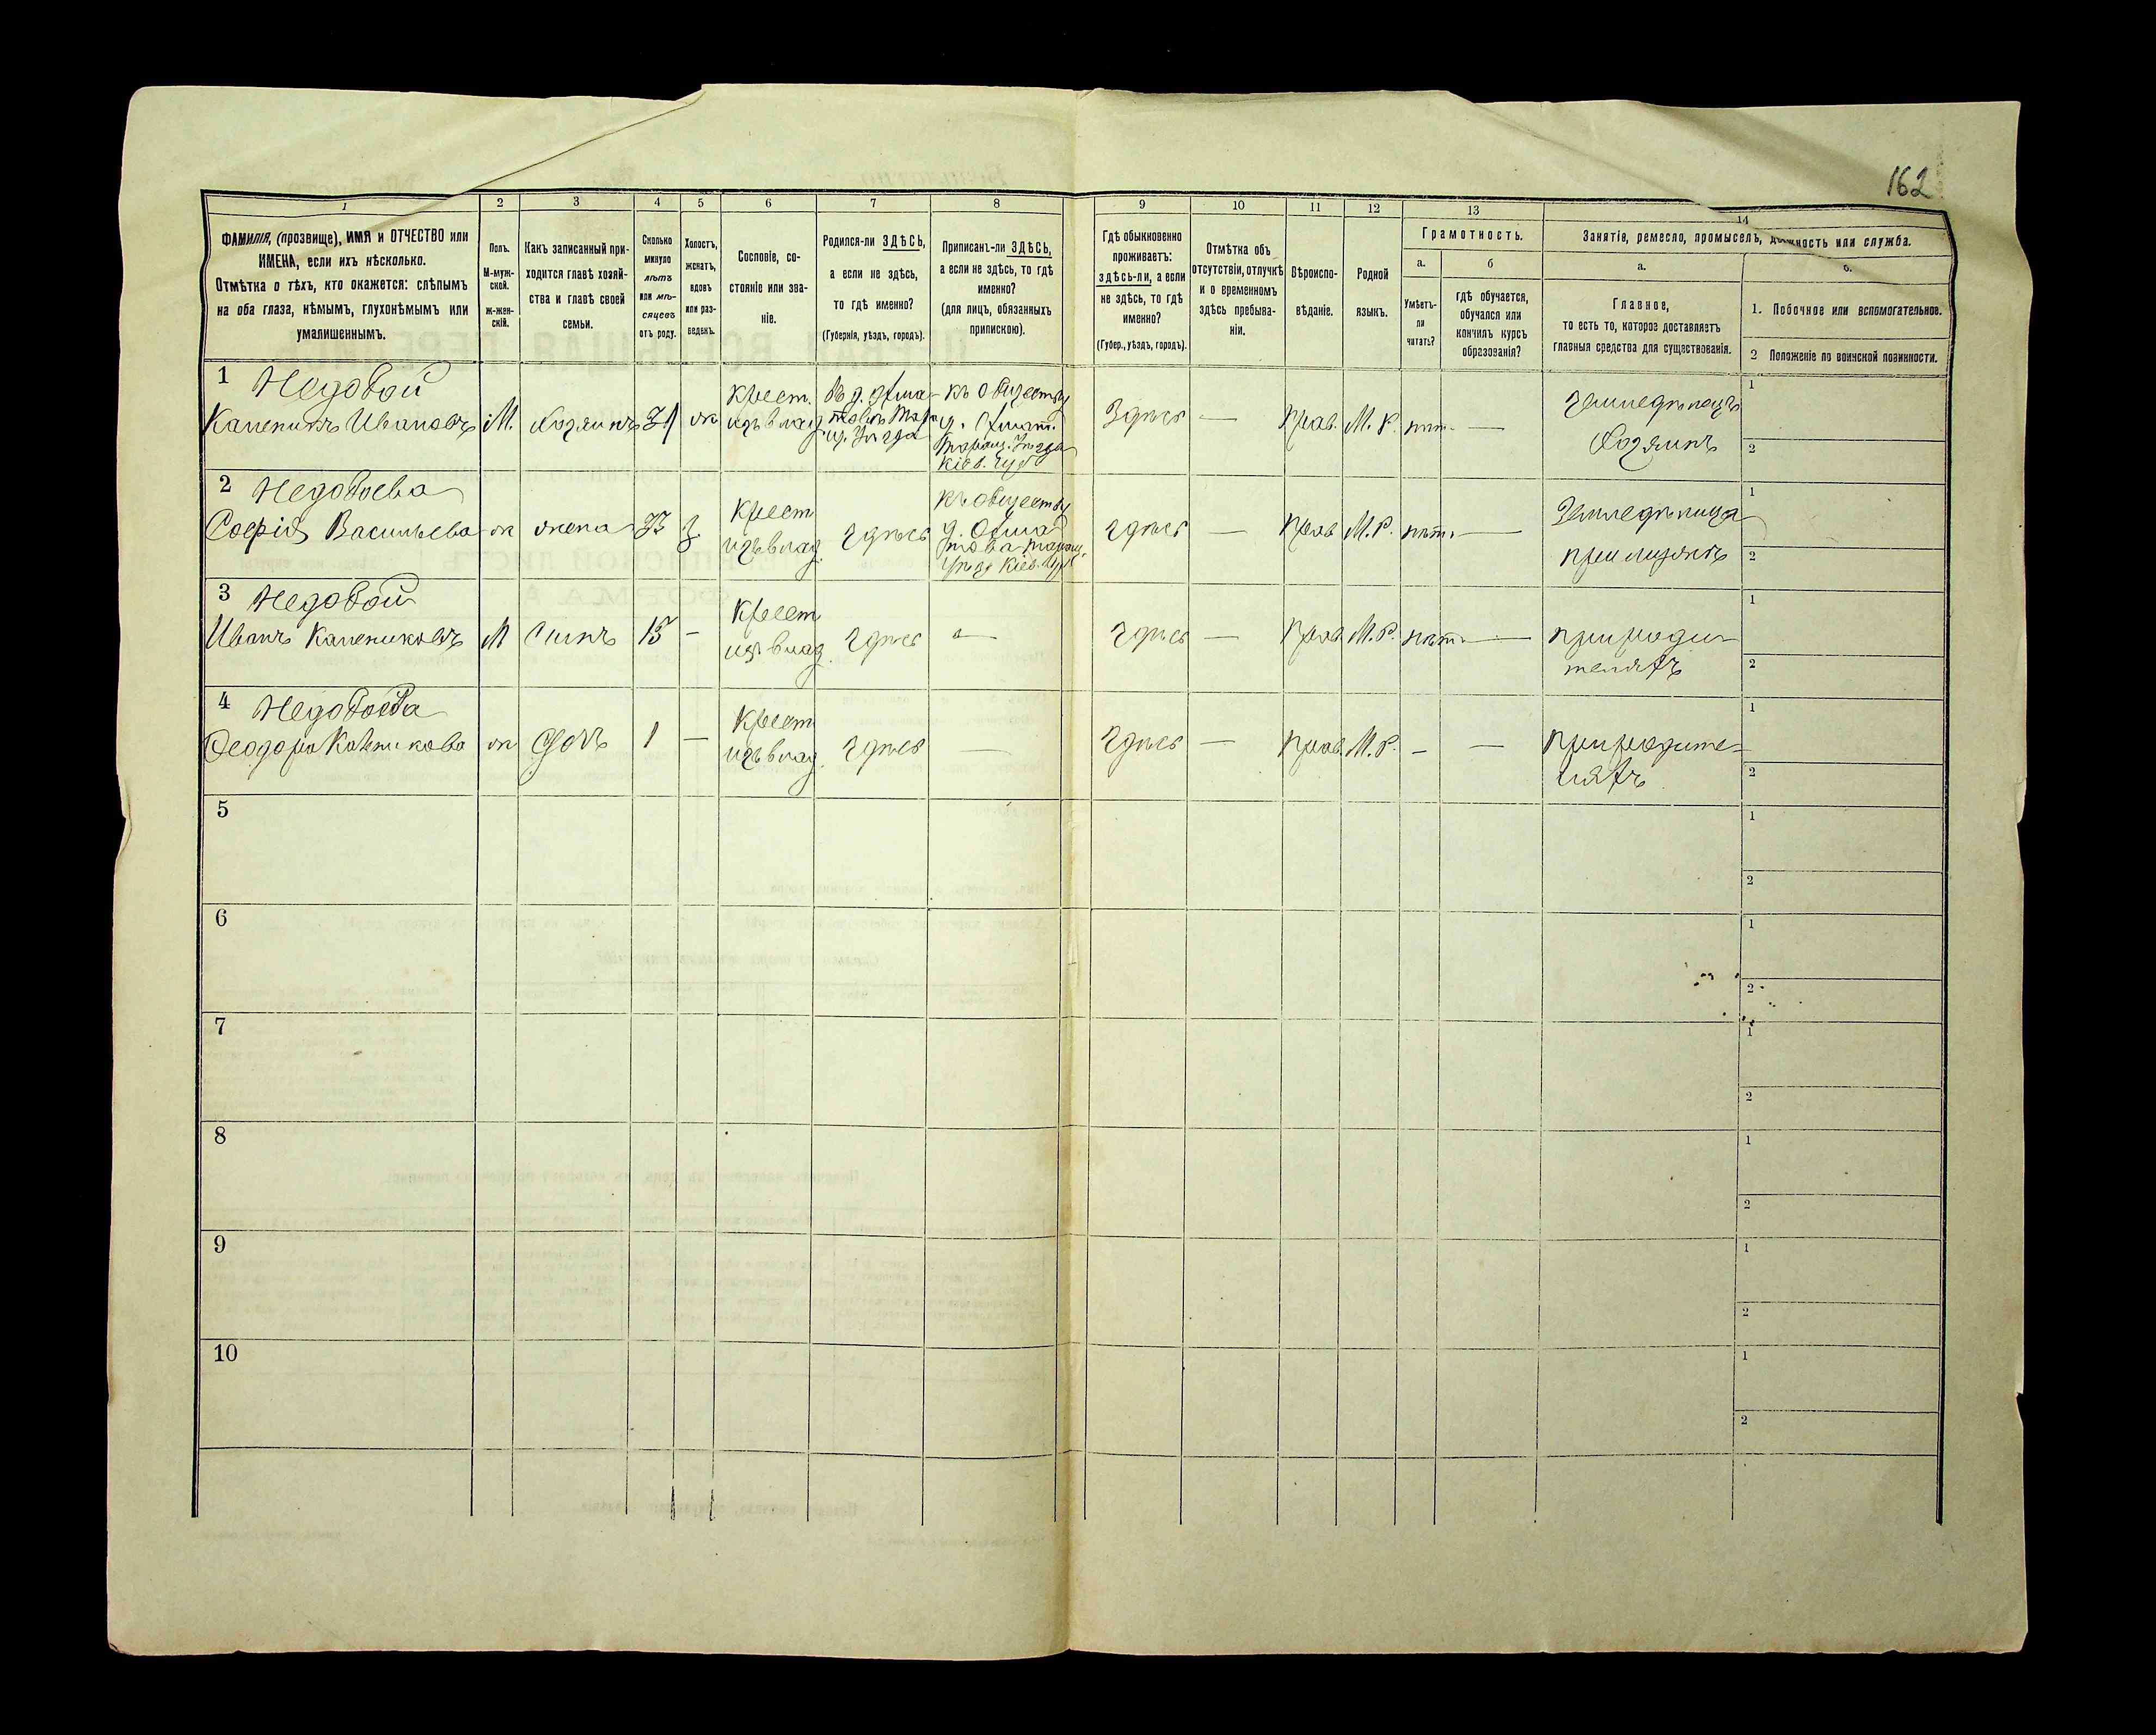 162
1
2
3
4
5
6
7
8
9
10
11
12
13
14
ФАМИЛІЯ, (прозвище), ИМЯ и ОТЧЕСТВО или
ИМЕНА, если ихъ нѣсколько.
Отмѣтка о тѣхъ, кто окажется: слѣпымъ
на оба глаза, нѣмымъ, глухонѣмымъ или
умалишеннымъ.
Полъ.
М-муж-
ской.
ж-жен-
скій.
Какъ записанный при-
ходится главѣ хозяй-
ства и главѣ своей
семьи.
Сколько
минуло
лѣтъ
или мѣ-
сяцевъ
отъ роду.
Холостъ,
женатъ,
вдовъ
или раз-
веденъ.
Сословіе, со-
стояніе или зва-
ніе.
Родился-ли ЗДѢСЬ,
а если не здѣсь,
то гдѣ именно?
(Губернія, уѣздъ, городъ).
Приписанъ-ли ЗДѢСЬ,
а если не здѣсь, то гдѣ
именно?
(для лицъ, обязанныхъ
припискою).
Гдѣ обыкновенно
проживаетъ:
здѣсь-ли, а если
не здѣсь, то гдѣ
именно?
(Губер., уѣздъ, городъ).
Отмѣтка объ
отсутствіи, отлучкѣ
и о временномъ
здѣсь пребыва-
ніи.
Вѣроиспо-
вѣданіе.
Родной
языкъ.
Грамотность.
а.
Умѣетъ-
ли
читать?
б
гдѣ обучается,
обучался или
кончилъ курсъ
образованія?
Занятіе, ремесло, промыселъ, должность или служба.
а.
Главное,
то есть то, которое доставляетъ
главныя средства для существованія.
б.
1. Побочное или вспомогательное.
2 Положеніе по воинской повинности.
1 Недобой
Каленикъ Ивановъ М. Хозяинъ ж
Крест.
изъ влад.
къ обществу
Здѣсь — Прав. М. Р. нѣт. —
Земледѣлецъ
Хозяинъ
1
2
2 Недобоева
Софія Васильева ж жена
Крест
изъ влад.
здѣсь
къ обществу
здѣсь — Прав М.Р. нѣт. —
Земледѣлица
при мужѣ
1
2
3 Недобой
Иванъ Калениковъ М Сынъ 15 —
Крест
изъ влад.
здѣсь —
здѣсь — Прав. М.Р. нѣт. —
при роди-
теляхъ
1
2
4 Недобоева
Феодора Каленикова ж Дочь 1 —
Крест
изъ влад.
здѣсь —
здѣсь — Прав. М.Р. - —
при родите-
ляхъ
1
2
5
1
2
6
1
2
7
1
2
8
1
2
9
1
2
10
1
2